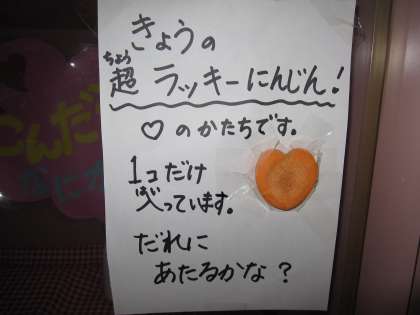 きょうの
ちょう
超ラッキーにんじん!
♡のかたちです。
1コだけ
はい
入っています。
だれに
あたるかな?
こんだ
なにか